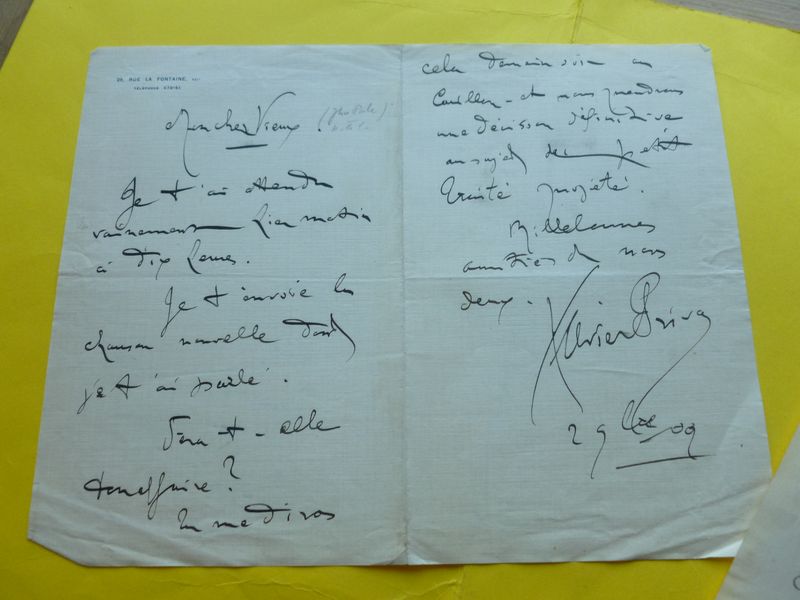 29, RUE LA FONTAINE,
TÉLÉPHONE
Mon cher Vieux.
Je t'ai attendu
vainement hier matin
à dix heures.
Je t'envoie la
chanson nouvelle dont
je t'ai parlé.
Fera-t-elle
ton affaire?
Tu me diras
cela demain soir au
Carillon - et nous prendrons
une décision définitive
au sujet du petit
traité projeté.
Mille bonnes
amitiés de nous
deux.
Xavier Privas
29 bre 09